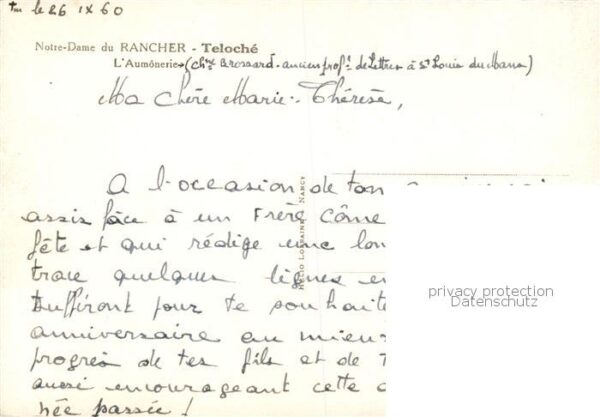 le 26 IX 60
Notre-Dame du RANCHER - Teloché
L'Aumônerie (chne Brossard - ancien prof. de Lettres à St Louis du Mans)
Ma chère Marie-Thérèse,
A l'occasion de ton
assis face à un Frère Côme
fête et qui rédige une lon
trace quelques lignes
suffiront pour te souhaite
anniversaire au mieux
progrès de tes fils et de
aussi encourageant cette
née passée !
HELIO LORRAINE NANCY
privacy protection
Datenschutz